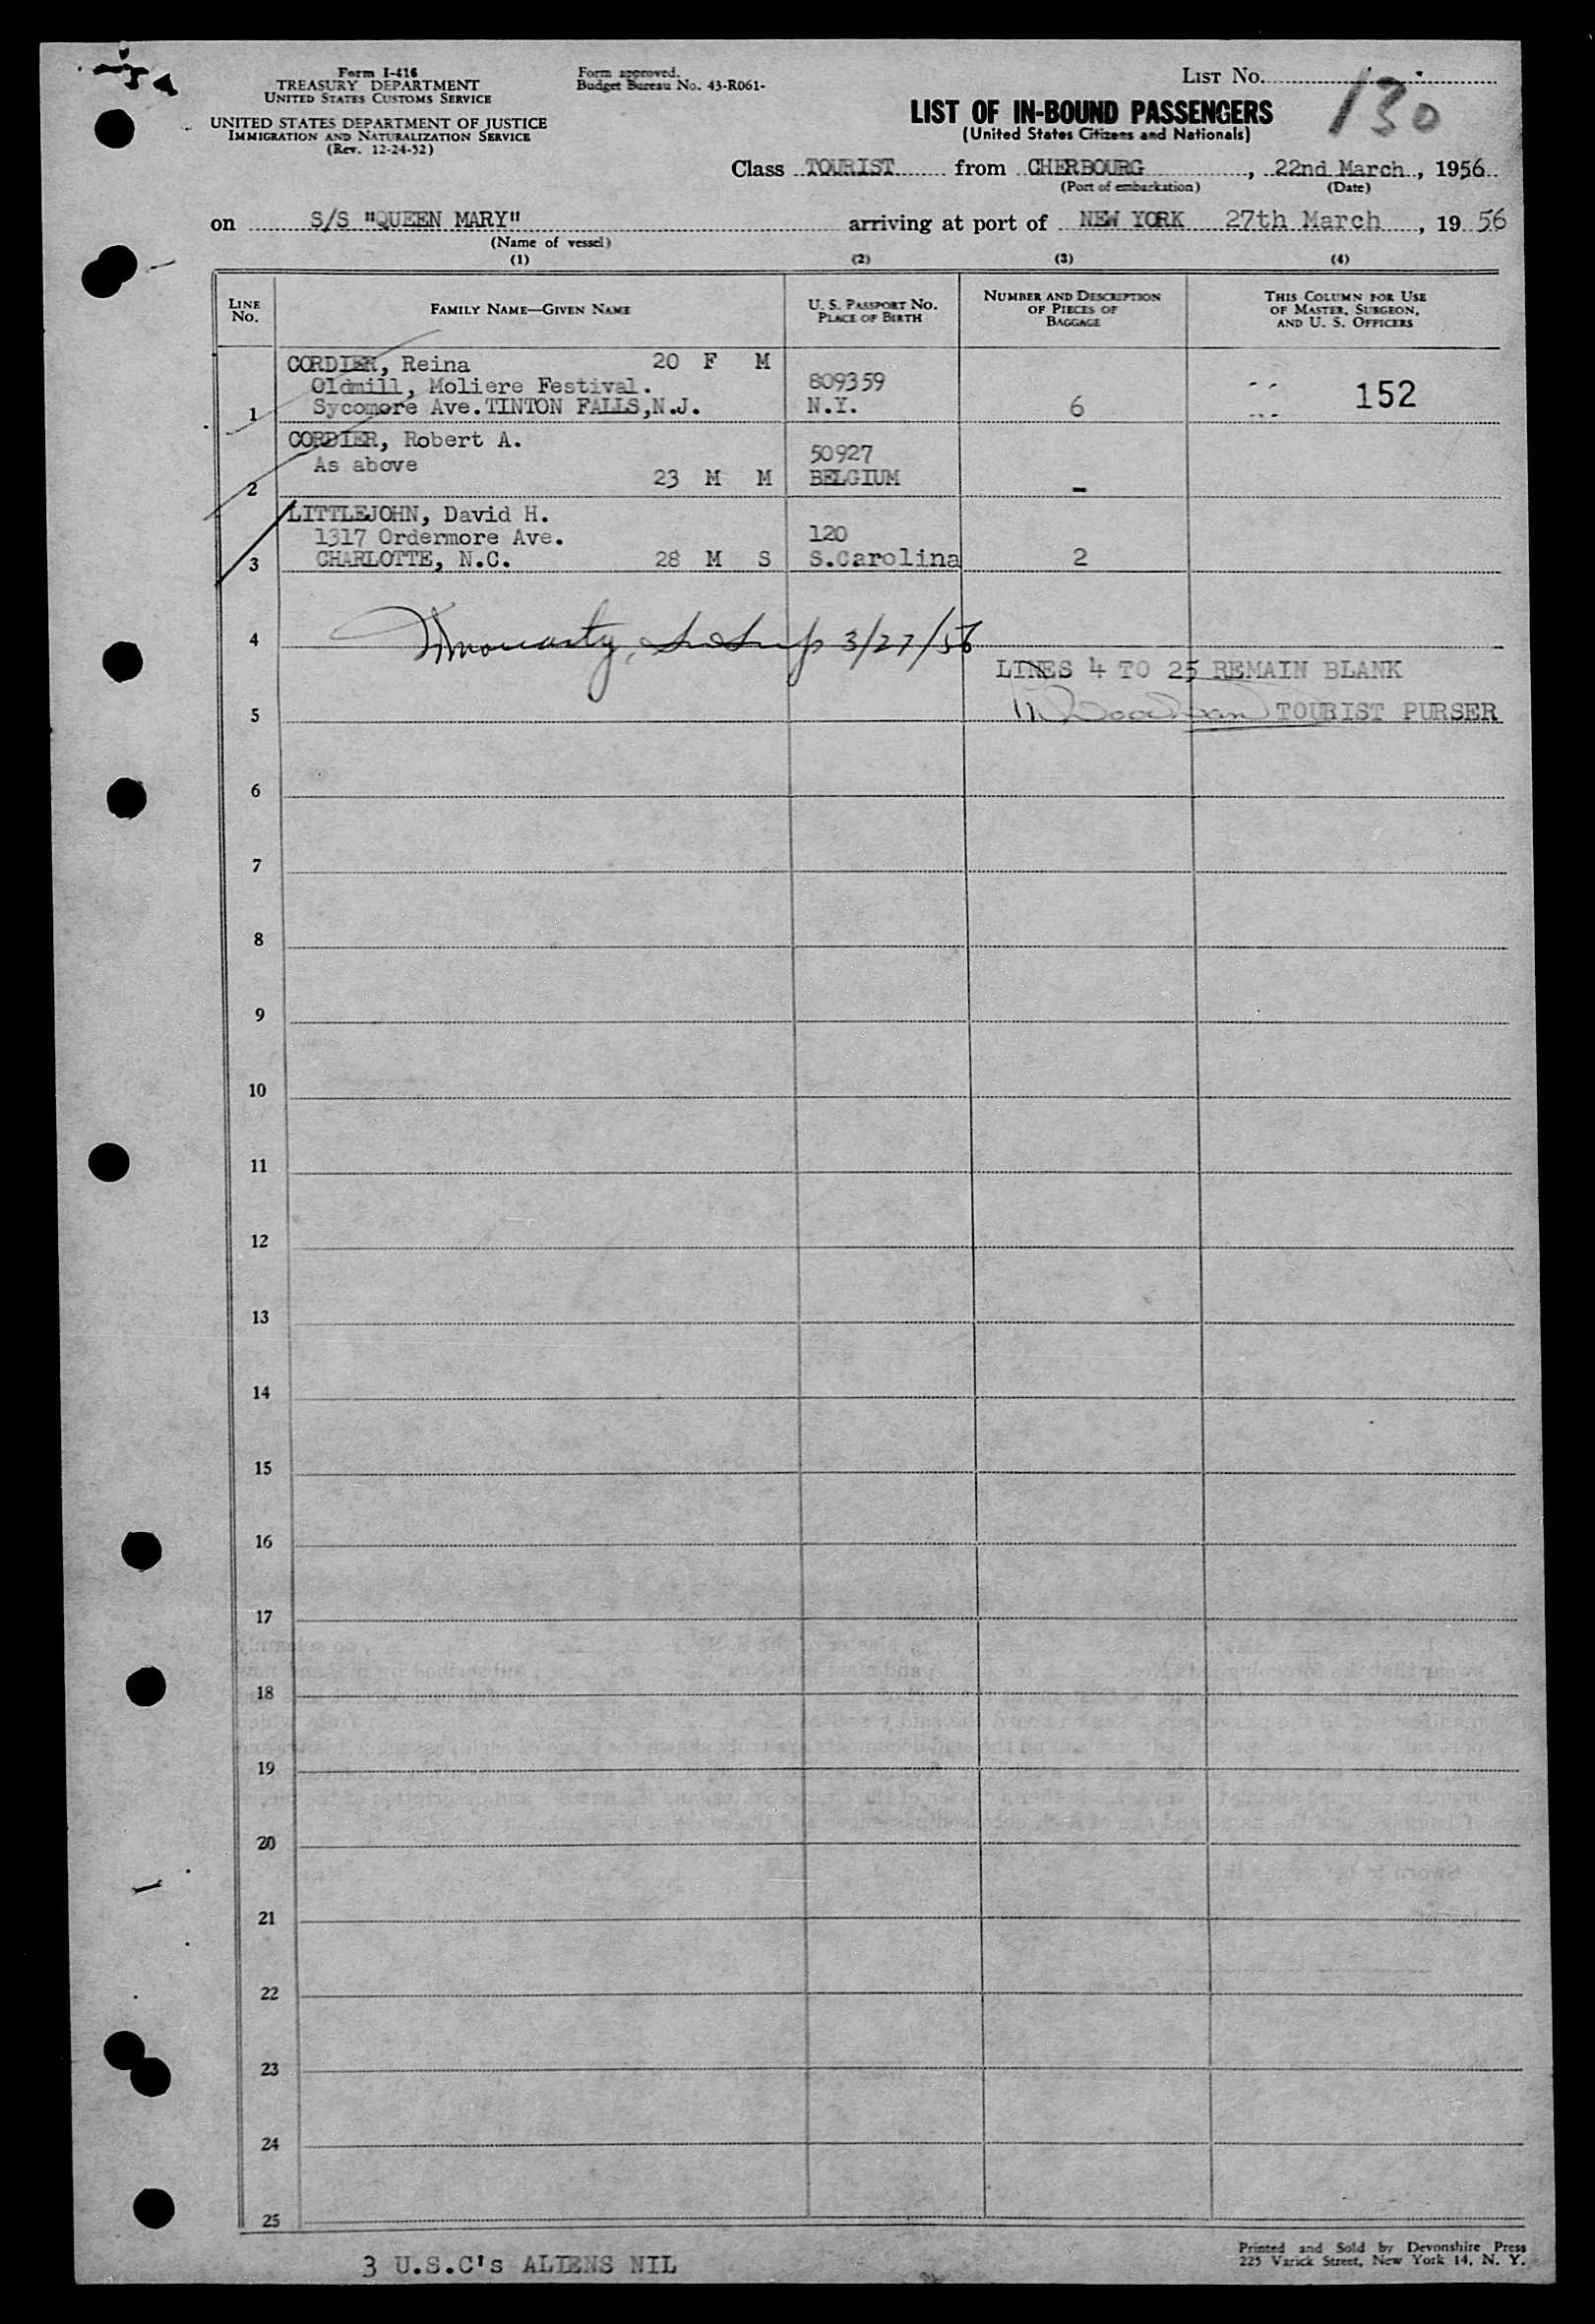 Form I-416
TREASURY DEPARTMENT
UNITED STATES CUSTOMS SERVICE
UNITED STATES DEPARTMENT OF JUSTICE
IMMIGRATION AND NATURALIZATION SERVICE
(Rev. 12-24-52)
Form approved.
Budget Bureau No. 43-R061-
LIST NO.
130
LIST OF IN-BOUND PASSENGERS
(United States Citizens and Nationals)
Class TOURIST from CHERBOURG, 22nd March, 1956
(Port of embarkation) (Date)
on S/S "QUEEN MARY" arriving at port of NEW YORK 27th March, 19 56
(Name of vessel)
(1) (2) (3) (4)
LINE NO. FAMILY NAME—GIVEN NAME U. S. PASSPORT NO. PLACE OF BIRTH NUMBER AND DESCRIPTION OF PIECES OF BAGGAGE THIS COLUMN FOR USE OF MASTER, SURGEON, AND U. S. OFFICERS
CORDIER, Reina 20 F M
Oldmill, Moliere Festival. 809359
1 Sycomore Ave.TINTON FALLS,N.J. N.Y. 6 152
CORDIER, Robert A.
As above 50927
2 23 M M BELGIUM -
LITTLEJOHN, David H.
1317 Ordermore Ave. 120
3 CHARLOTTE, N.C. 28 M S S.Carolina 2
4 3/27/56
LINES 4 TO 25 REMAIN BLANK
5 TOURIST PURSER
6
7
8
9
10
11
12
13
14
15
16
17
18
19
20
21
22
23
24
25
3 U.S.C's ALIENS NIL
Printed and Sold by Devonshire Press
225 Varick Street, New York 14, N. Y.